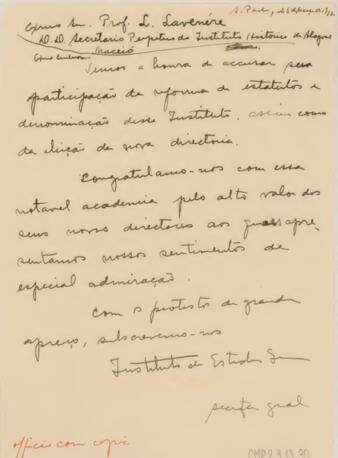 S. Paulo,
Exmo Snr. Prof. L. Lavenére
D.D. Secretario Perpetuo do Instituto Historico de Alagoas
Maceió
Temos a honra de accusar sua
participação da reforma de estatutos e
denominação desse Instituto, assim como
da eleição de nova directoria.
Congratulamo-nos com essa
notavel academia pelo alto valor dos
seus novos directores aos quaes apre-
sentamos nossos sentimentos de
especial admiração.
Com os protestos de grande
apreço, subscrevemo-nos
Instituto de Estudos
secretº geral
officio com copia